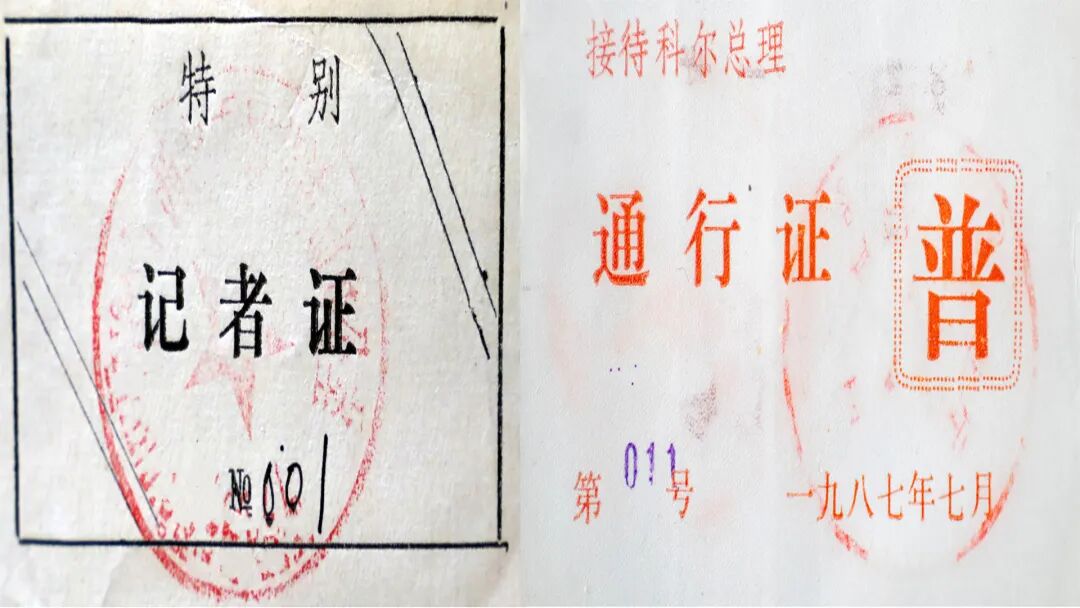 特别
记者证
№001
接待科尔总理
通行证
普
第011号
一九八七年七月